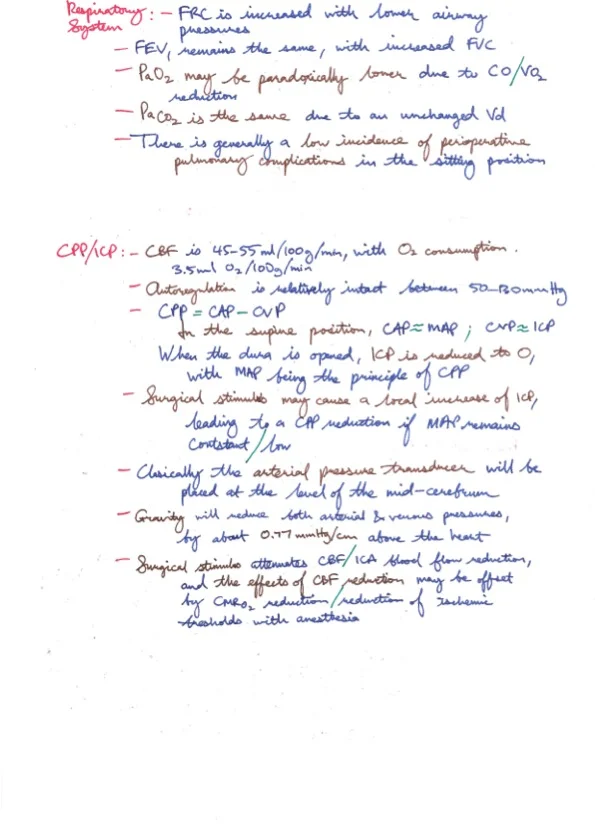 Respiratory : - FRC is increased with lower airway
System pressures
- FEV, remains the same, with increased FVC
- PaO2 may be paradoxically lower due to CO/VO2
reduction
- PaCO2 is the same due to an unchanged Vd
- There is generally a low incidence of perioperative
pulmonary complications in the sitting position
CPP/ICP : - CBF is 45-55ml/100g/min, with O2 consumption.
3.5ml O2/100g/min
- Autoregulation is relatively intact between 50-130mmHg
- CPP = CAP - CVP
In the supine position, CAP≈MAP ; CVP≈ICP
When the dura is opened, ICP is reduced to 0,
with MAP being the principle of CPP
- Surgical stimulus may cause a local increase of ICP,
leading to a CPP reduction if MAP remains
/low
- Clasically the arterial pressure transducer will be
placed at the level of the mid-cerebrum
- Gravity will reduce both arterial & venous pressures,
by about 0.77 mmHg/cm above the heart
- Surgical stimulus attenuates CBF/ICA blood flow reduction,
and the effects of CBF reduction may be offset
by CMRO2 reduction/reduction of Ischemic
thresholds with anesthesia